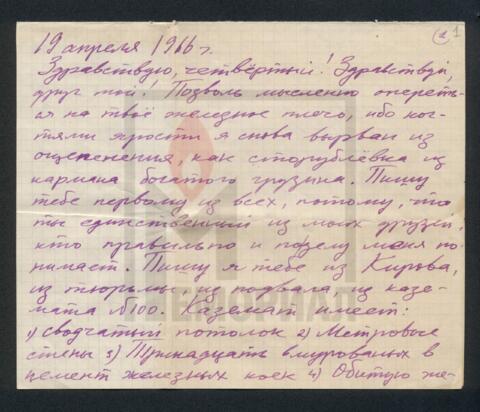 (2) 1
19 апреля 1966 г.
Здравствую, четвёртый! Здравствуй,
друг мой! Позволь мысленно опереть-
ся на твоё железное плечо, ибо ког-
тями ярости я снова вырван из
оцепенения, как сторублёвка из
кармана богатого грузина. Пишу
тебе первому из всех, потому, что
ты единственный из моих друзей,
кто правильно и поэтому меня по-
нимает. Пишу я тебе из Кирова,
из тюрьмы, из подвала из казе-
мата №100. Каземат имеет:
1) сводчатый потолок 2) Метровые
стены 3) Тринадцать вмурованых в
цемент железных коек 4) Обитую же-
МЕМОРИАЛ